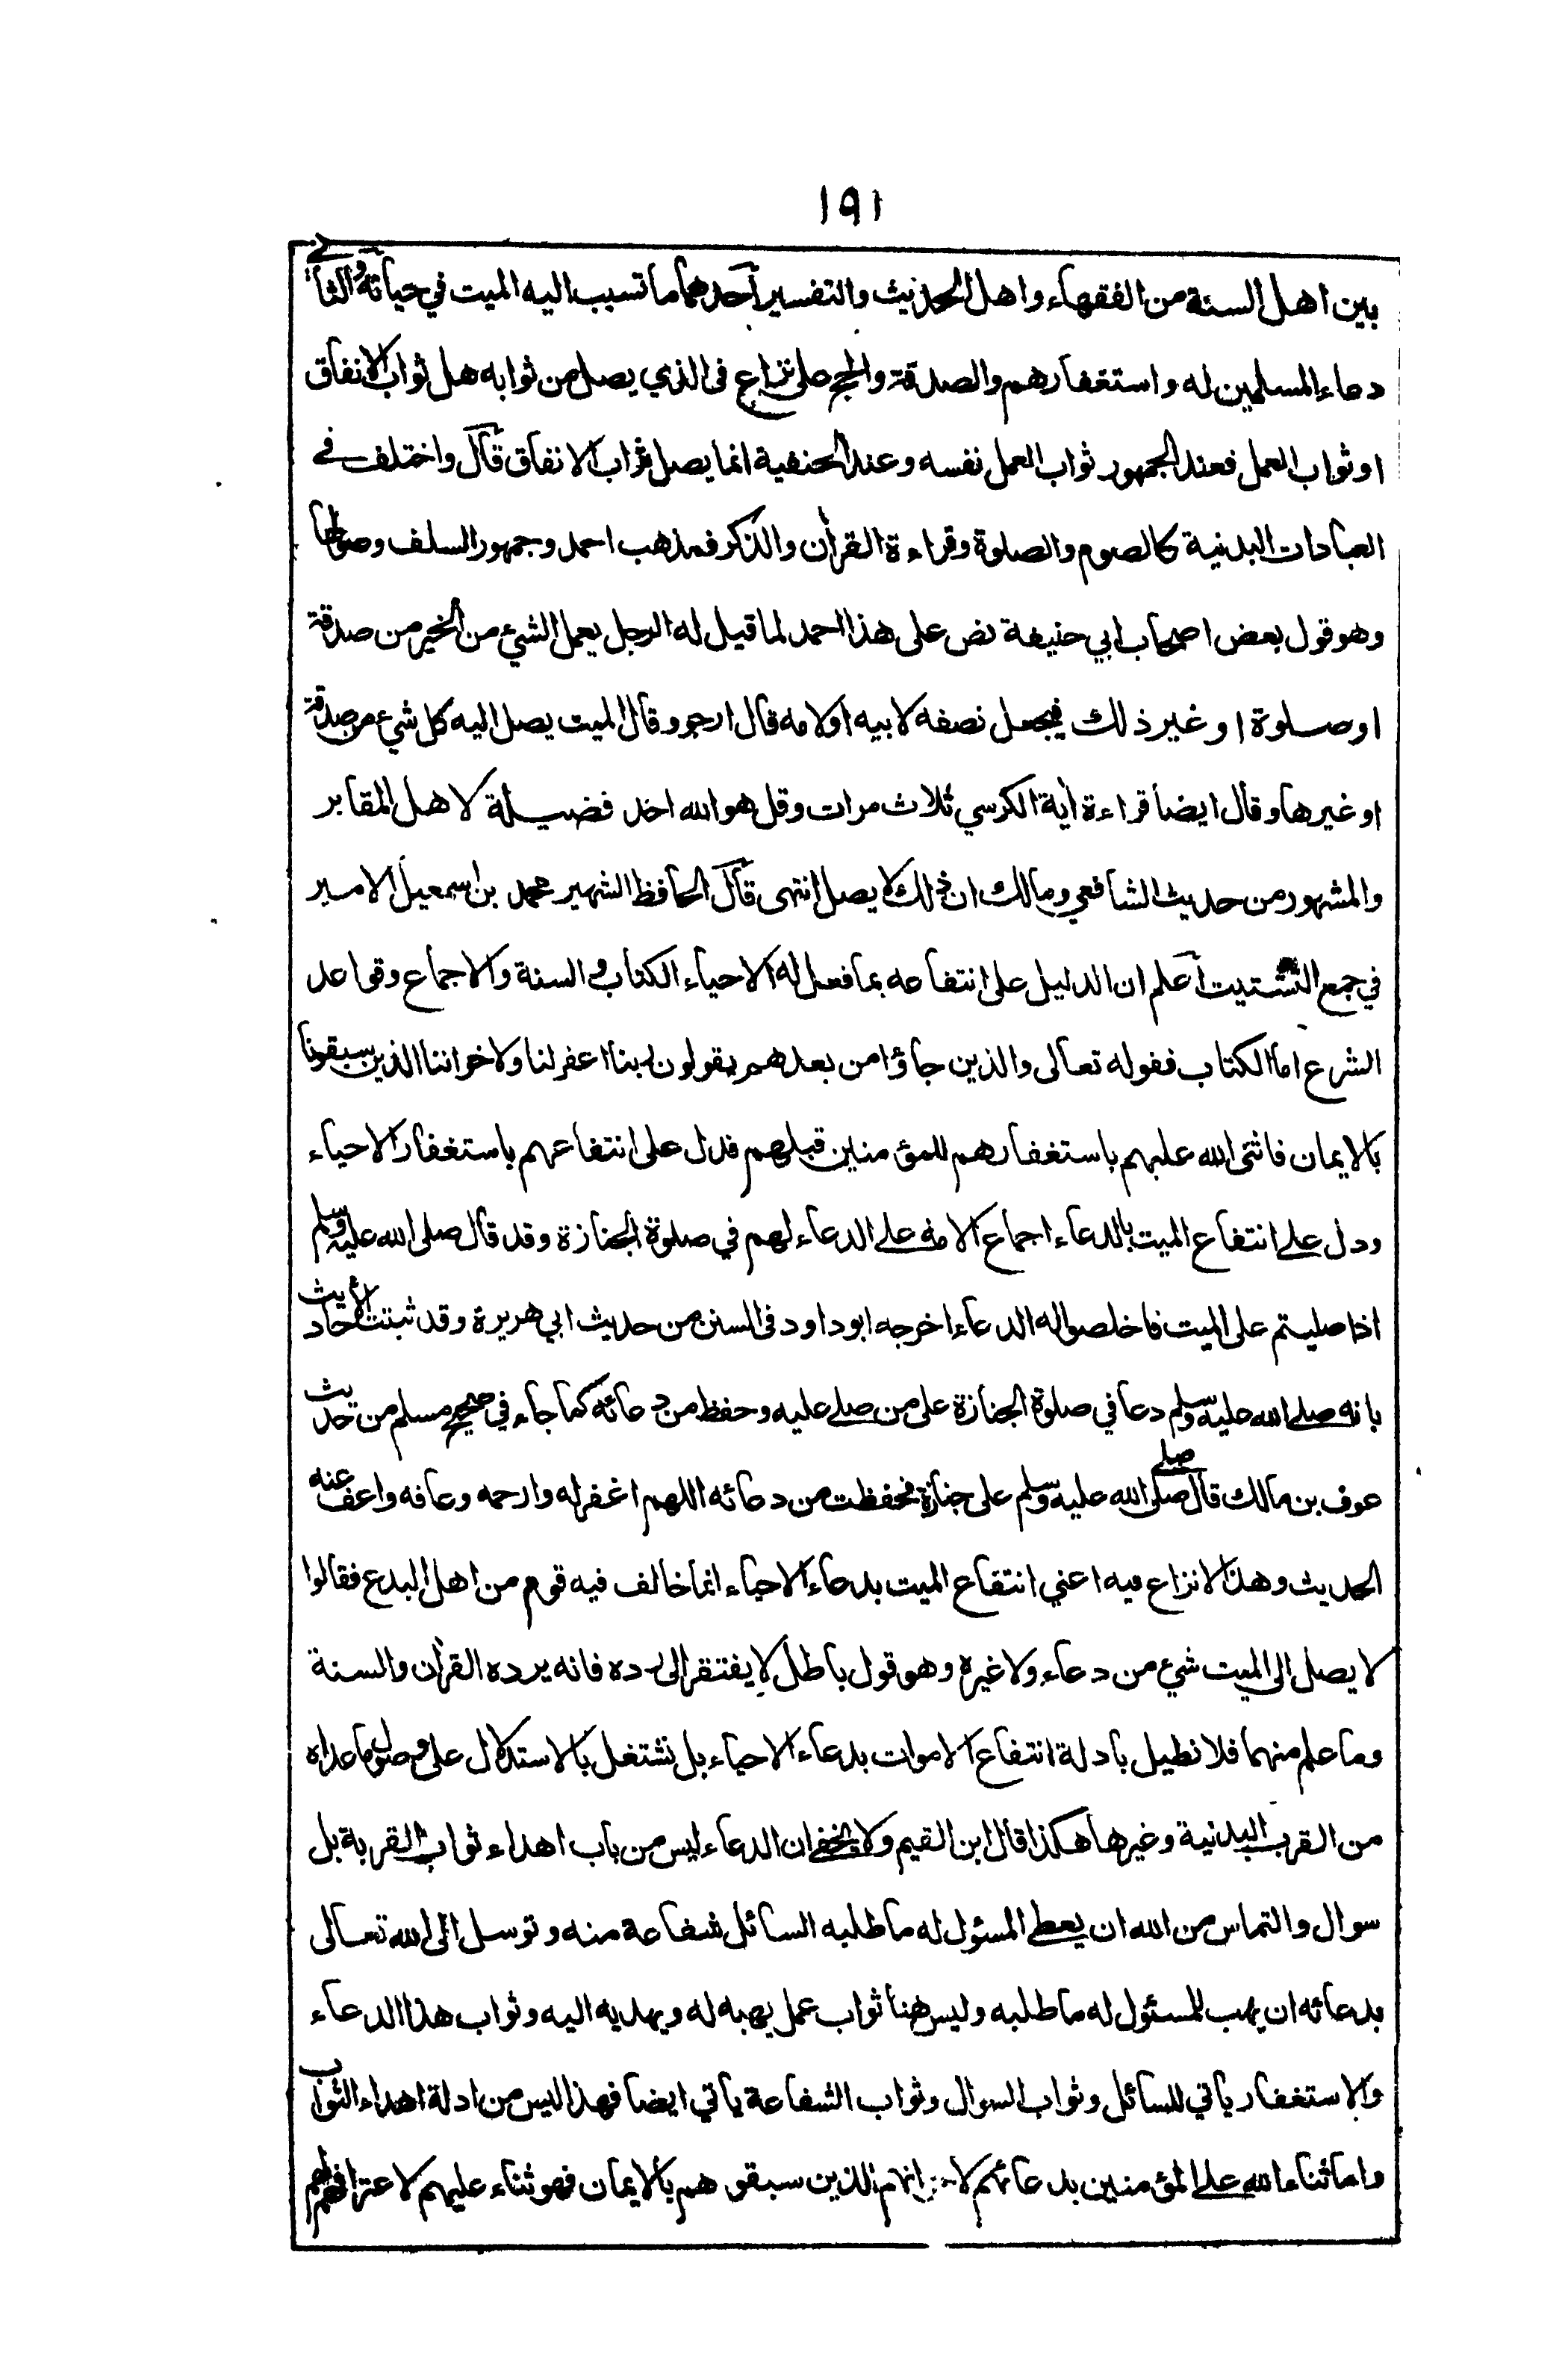 ١٩١
بين اهل السنة من الفقهاء واهل الحديث والتفسير احدهما ما تسبب اليه الميت في حياته والثاني
دعاء المسلمين له واستغفارهم والصدقة والحج على نزاع فى الذي يصل من ثوابه هل ثواب الانفاق
او ثواب العمل فعند الجمهور ثواب العمل نفسه وعند الحنفية انما يصل ثواب الانفاق قال واختلف في
العبادات البدنية كالصوم والصلوة وقراءة القرأن والذكر فمذهب احمد وجمهور السلف وصولها
وهو قول بعض اصحاب ابي حنيفة نص على هذا احمد لما قيل له الرجل يعمل الشيء من الخير من صدقة
او صلوة او غير ذلك فيجعل نصفه لابيه اولامه قال ارجو وقال الميت يصل اليه كل شيء من صدقة
او غيرها وقال ايضا قراءة أية الكرسي ثلاث مرات وقل هو الله احد فضيلة لاهل المقابر
والمشهور من حديث الشافعي ومالك ان ذلك لا يصل انتهى قال الحافظ الشهير محمد بن اسمعيل الامير
في جمع التشتيت اعلم ان الدليل على انتفاعه بما فعل له الاحياء الكتاب والسنة والاجماع وقواعد
الشرع اما الكتاب فقوله تعالى والذين جاؤا من بعدهم يقولون ربنا اغفر لنا ولاخواننا الذين سبقونا
بالايمان فاثنى الله عليهم باستغفارهم للمؤمنين قبلهم فدل على انتفاعهم باستغفار الاحياء
ودل على انتفاع الميت بالدعاء اجماع الامة على الدعاء لهم في صلوة الجنازة وقد قال صلى الله عليه وسلم
اذا صليتم على الميت فاخلصوا له الدعاء اخرجه ابوداود فى السنن من حديث ابي هريرة وقد ثبتت الاحاديث
بانه صلى الله عليه وسلم دعا في صلوة الجنازة على من صلى عليه وحفظ من دعائه كما جاء في صحيح مسلم من حديث
عوف بن مالك قال صلى صلى الله عليه وسلم على جنازة فحفظت من دعائه اللهم اغفر له وارحمه وعافه واعف عنه
الحديث وهذا لا نزاع فيه اعني انتفاع الميت بدعاء الاحياء انما خالف فيه قوم من اهل البدع فقالوا
لا يصل الى الميت شيء من دعاء ولا غيره وهو قول باطل لا يفتقر الى رده فانه يرده القرأن والسنة
وما علم منهما فلا نطيل بادلة انتفاع الاموات بدعاء الاحياء بل نشتغل بالاستدلال على وصول ما عداه
من القرب البدنية وغيرها هكذا قال ابن القيم ولا يخفى ان الدعاء ليس من باب اهداء ثواب القربة بل
سوال والتماس من الله ان يعطى المسئول له ما طلبه السائل شفاعة منه وتوسل الى الله تعالى
بدعائه ان يهب للمسئول له ما طلبه وليس هنا ثواب عمل يهبه له ويهديه اليه وثواب هذا الدعاء
والاستغفار ياتي للسائل وثواب السوال وثواب الشفاعة ياتي ايضا فهذا ليس من ادلة اهداء الثواب
واما ثناء الله على المؤمنين بدعائهم الذين سبقوهم بالايمان فهو ثناء عليهم لاعترافهم